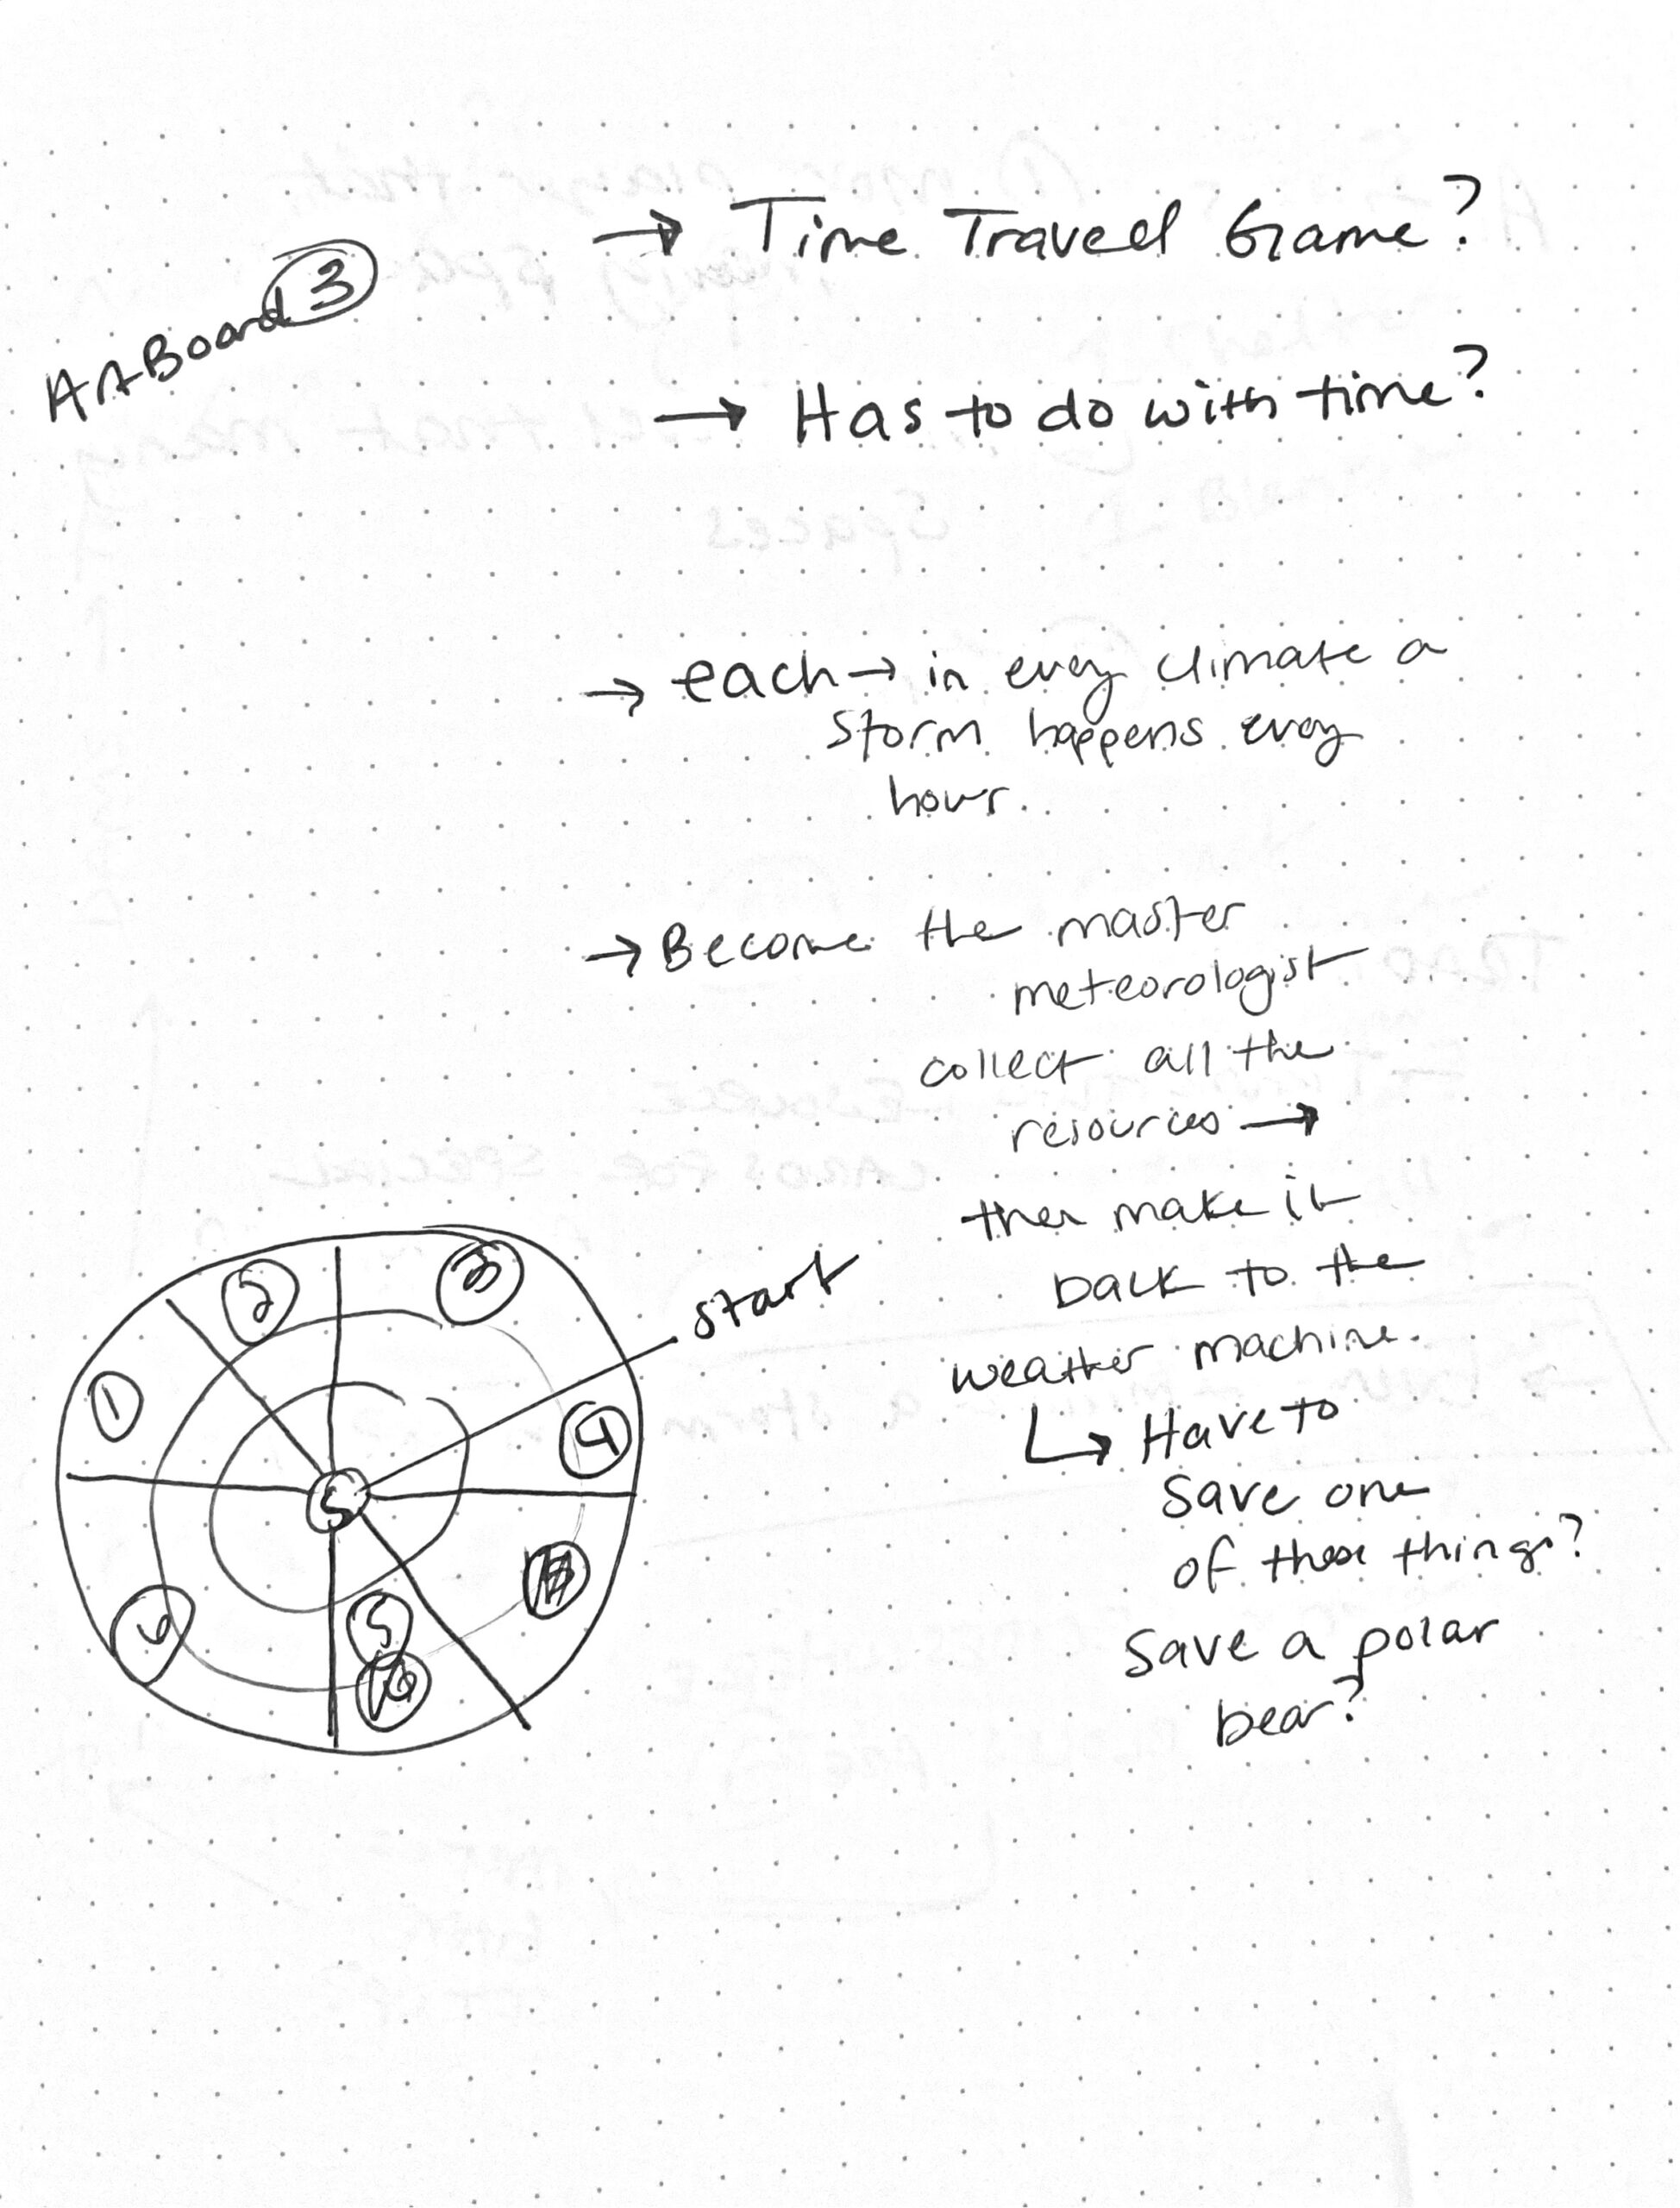 ArtBoard 3
→ Time Travell Game?
→ Has to do with time?
→ each → in every climate a
storm happens every
hour.
→ Become the master
meteorologist
collect all the
resources →
then make it
back to the
weather machine.
↳ Have to
save one
of these things?
save a polar
bear?
start
2
3
1
4
S
5
6